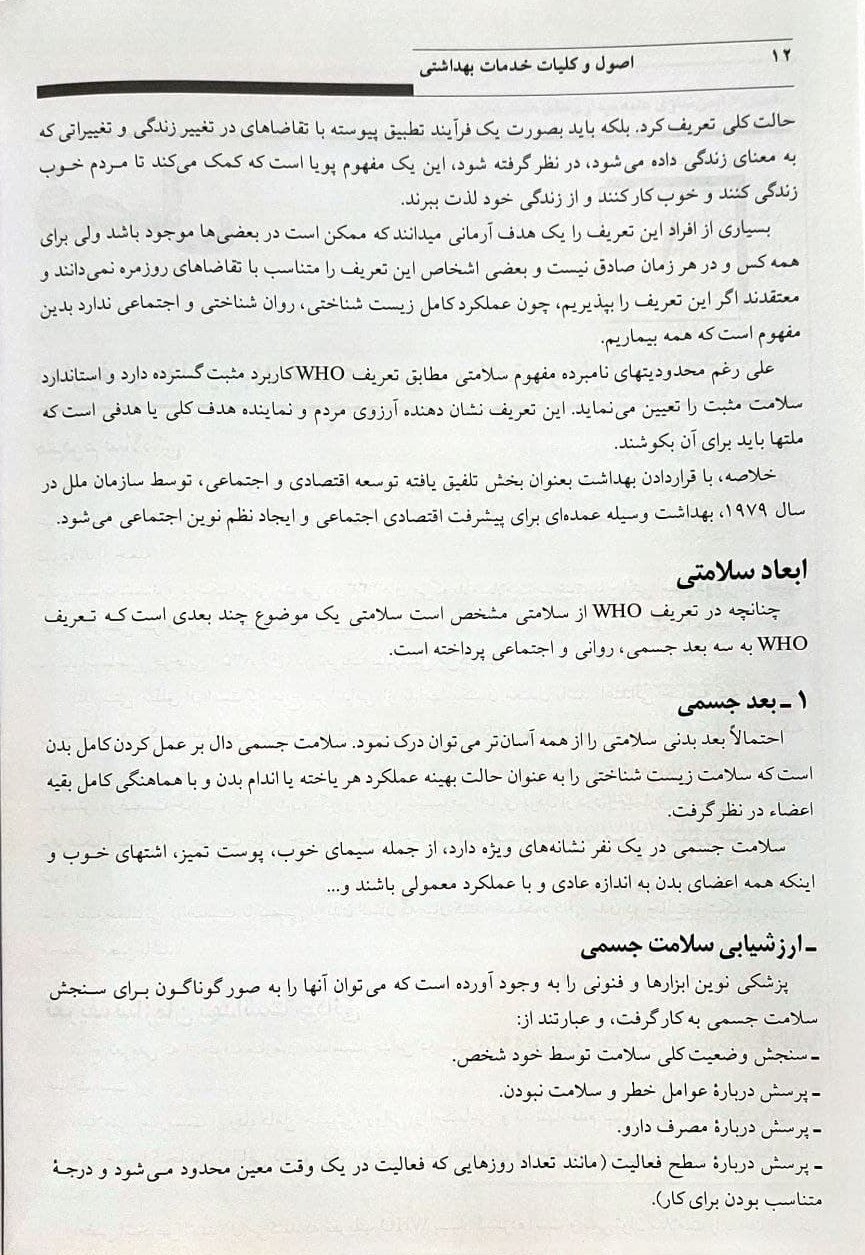 ۱۲
اصول و کلیات خدمات بهداشتی
حالت کلی تعریف کرد. بلکه باید بصورت یک فرآیند تطبیق پیوسته با تقاضاهای در تغییر زندگی و تغییراتی که
به معنای زندگی داده می‌شود، در نظر گرفته شود، این یک مفهوم پویا است که کمک می‌کند تا مردم خوب
زندگی کنند و خوب کار کنند و از زندگی خود لذت ببرند.
بسیاری از افراد این تعریف را یک هدف آرمانی میدانند که ممکن است در بعضی‌ها موجود باشد ولی برای
همه کس و در هر زمان صادق نیست و بعضی اشخاص این تعریف را متناسب با تقاضاهای روزمره نمی‌دانند و
معتقدند اگر این تعریف را بپذیریم، چون عملکرد کامل زیست شناختی، روان شناختی و اجتماعی ندارد بدین
مفهوم است که همه بیماریم.
علی رغم محدودیتهای نامبرده مفهوم سلامتی مطابق تعریف WHO کاربرد مثبت گسترده دارد و استاندارد
سلامت مثبت را تعیین می‌نماید. این تعریف نشان دهنده آرزوی مردم و نماینده هدف کلی یا هدفی است که
ملتها باید برای آن بکوشند.
خلاصه، با قراردادن بهداشت بعنوان بخش تلفیق یافته توسعه اقتصادی و اجتماعی، توسط سازمان ملل در
سال ۱۹۷۹، بهداشت وسیله عمده‌ای برای پیشرفت اقتصادی اجتماعی و ایجاد نظم نوین اجتماعی می‌شود.
ابعاد سلامتی
چنانچه در تعریف WHO از سلامتی مشخص است سلامتی یک موضوع چند بعدی است که تعریف
WHO به سه بعد جسمی، روانی و اجتماعی پرداخته است.
۱ ـ بعد جسمی
احتمالاً بعد بدنی سلامتی را از همه آسان‌تر می‌توان درک نمود. سلامت جسمی دال بر عمل کردن کامل بدن
است که سلامت زیست شناختی را به عنوان حالت بهینه عملکرد هر یاخته یا اندام بدن و با هماهنگی کامل بقیه
اعضاء در نظر گرفت.
سلامت جسمی در یک نفر نشانه‌های ویژه دارد، از جمله سیمای خوب، پوست تمیز، اشتهای خوب و
اینکه همه اعضای بدن به اندازه عادی و با عملکرد معمولی باشند و...
ـ ارزشیابی سلامت جسمی
پزشکی نوین ابزارها و فنونی را به وجود آورده است که می‌توان آنها را به صور گوناگون برای سنجش
سلامت جسمی به کار گرفت، و عبارتند از:
ـ سنجش وضعیت کلی سلامت توسط خود شخص.
ـ پرسش دربارهٔ عوامل خطر و سلامت نبودن.
ـ پرسش دربارهٔ مصرف دارو.
ـ پرسش دربارهٔ سطح فعالیت (مانند تعداد روزهایی که فعالیت در یک وقت معین محدود می‌شود و درجهٔ
متناسب بودن برای کار).